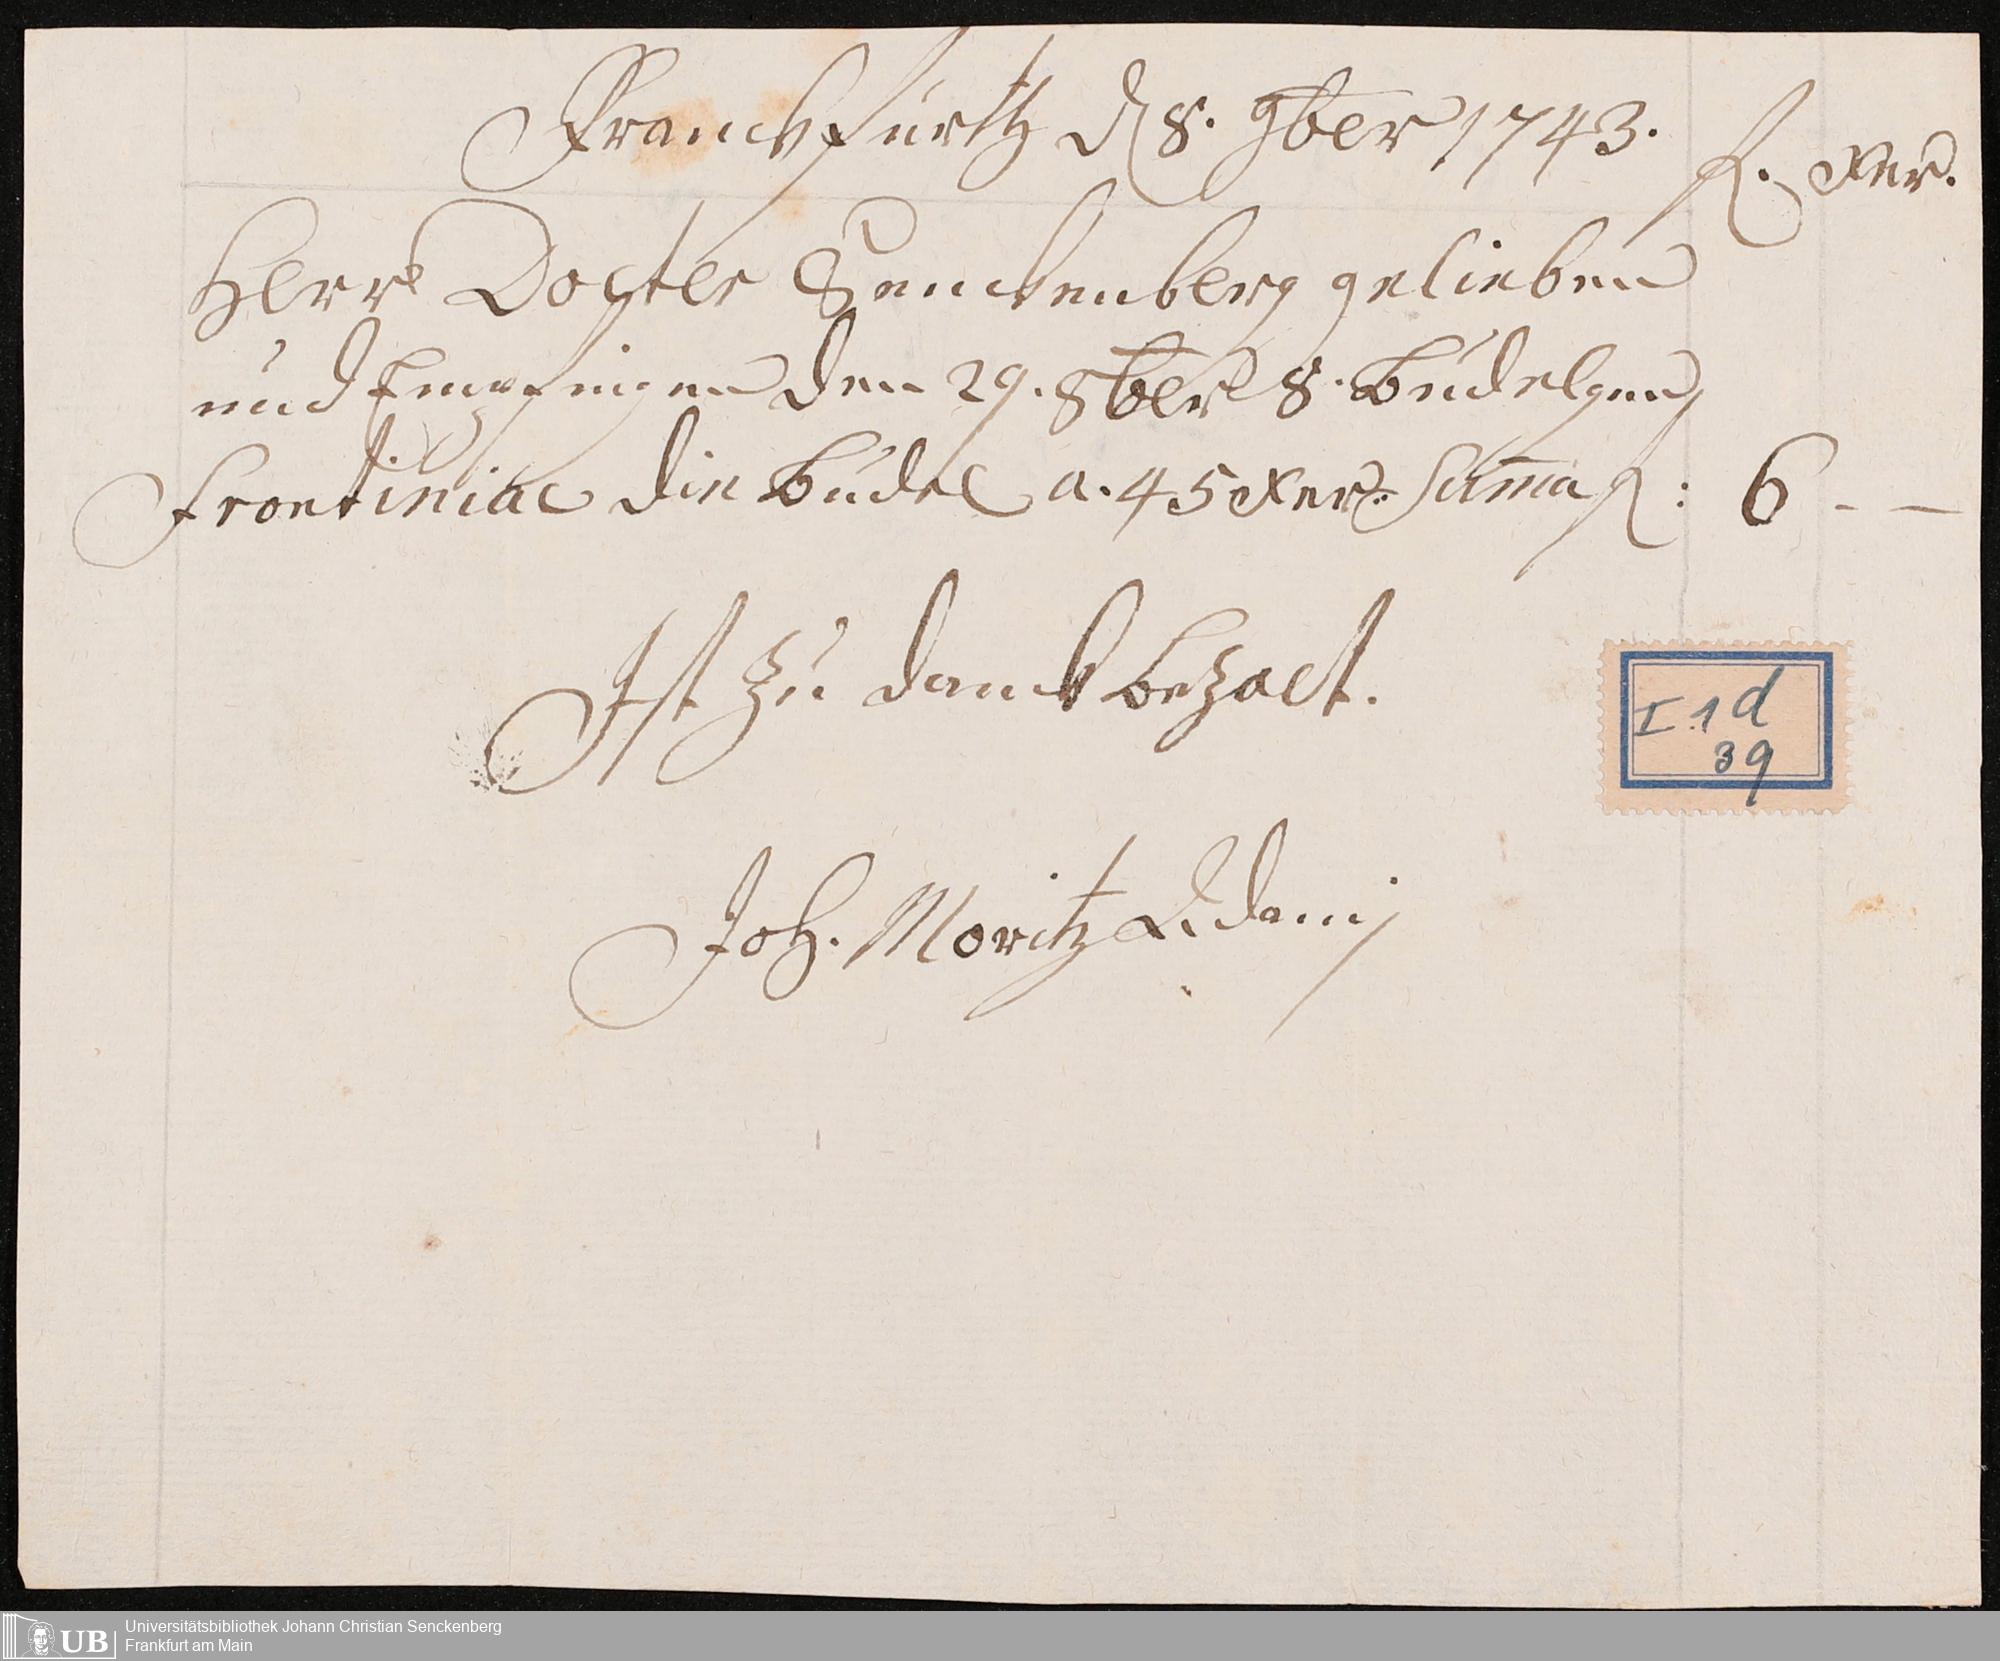 Franckfurth d 8. 9ber 1743.
f. Xer.
Herr Docter Senckenberg gelieben
und Empfingen den 29. 8ber 8. Budelgen
Frontiniac die Budel a. 45 Xer. Suma f: 6 - —
Ist zu danck bezalt.
I 1 d
39
Joh. Moritz Adami
UB
Universitätsbibliothek Johann Christian Senckenberg
Frankfurt am Main